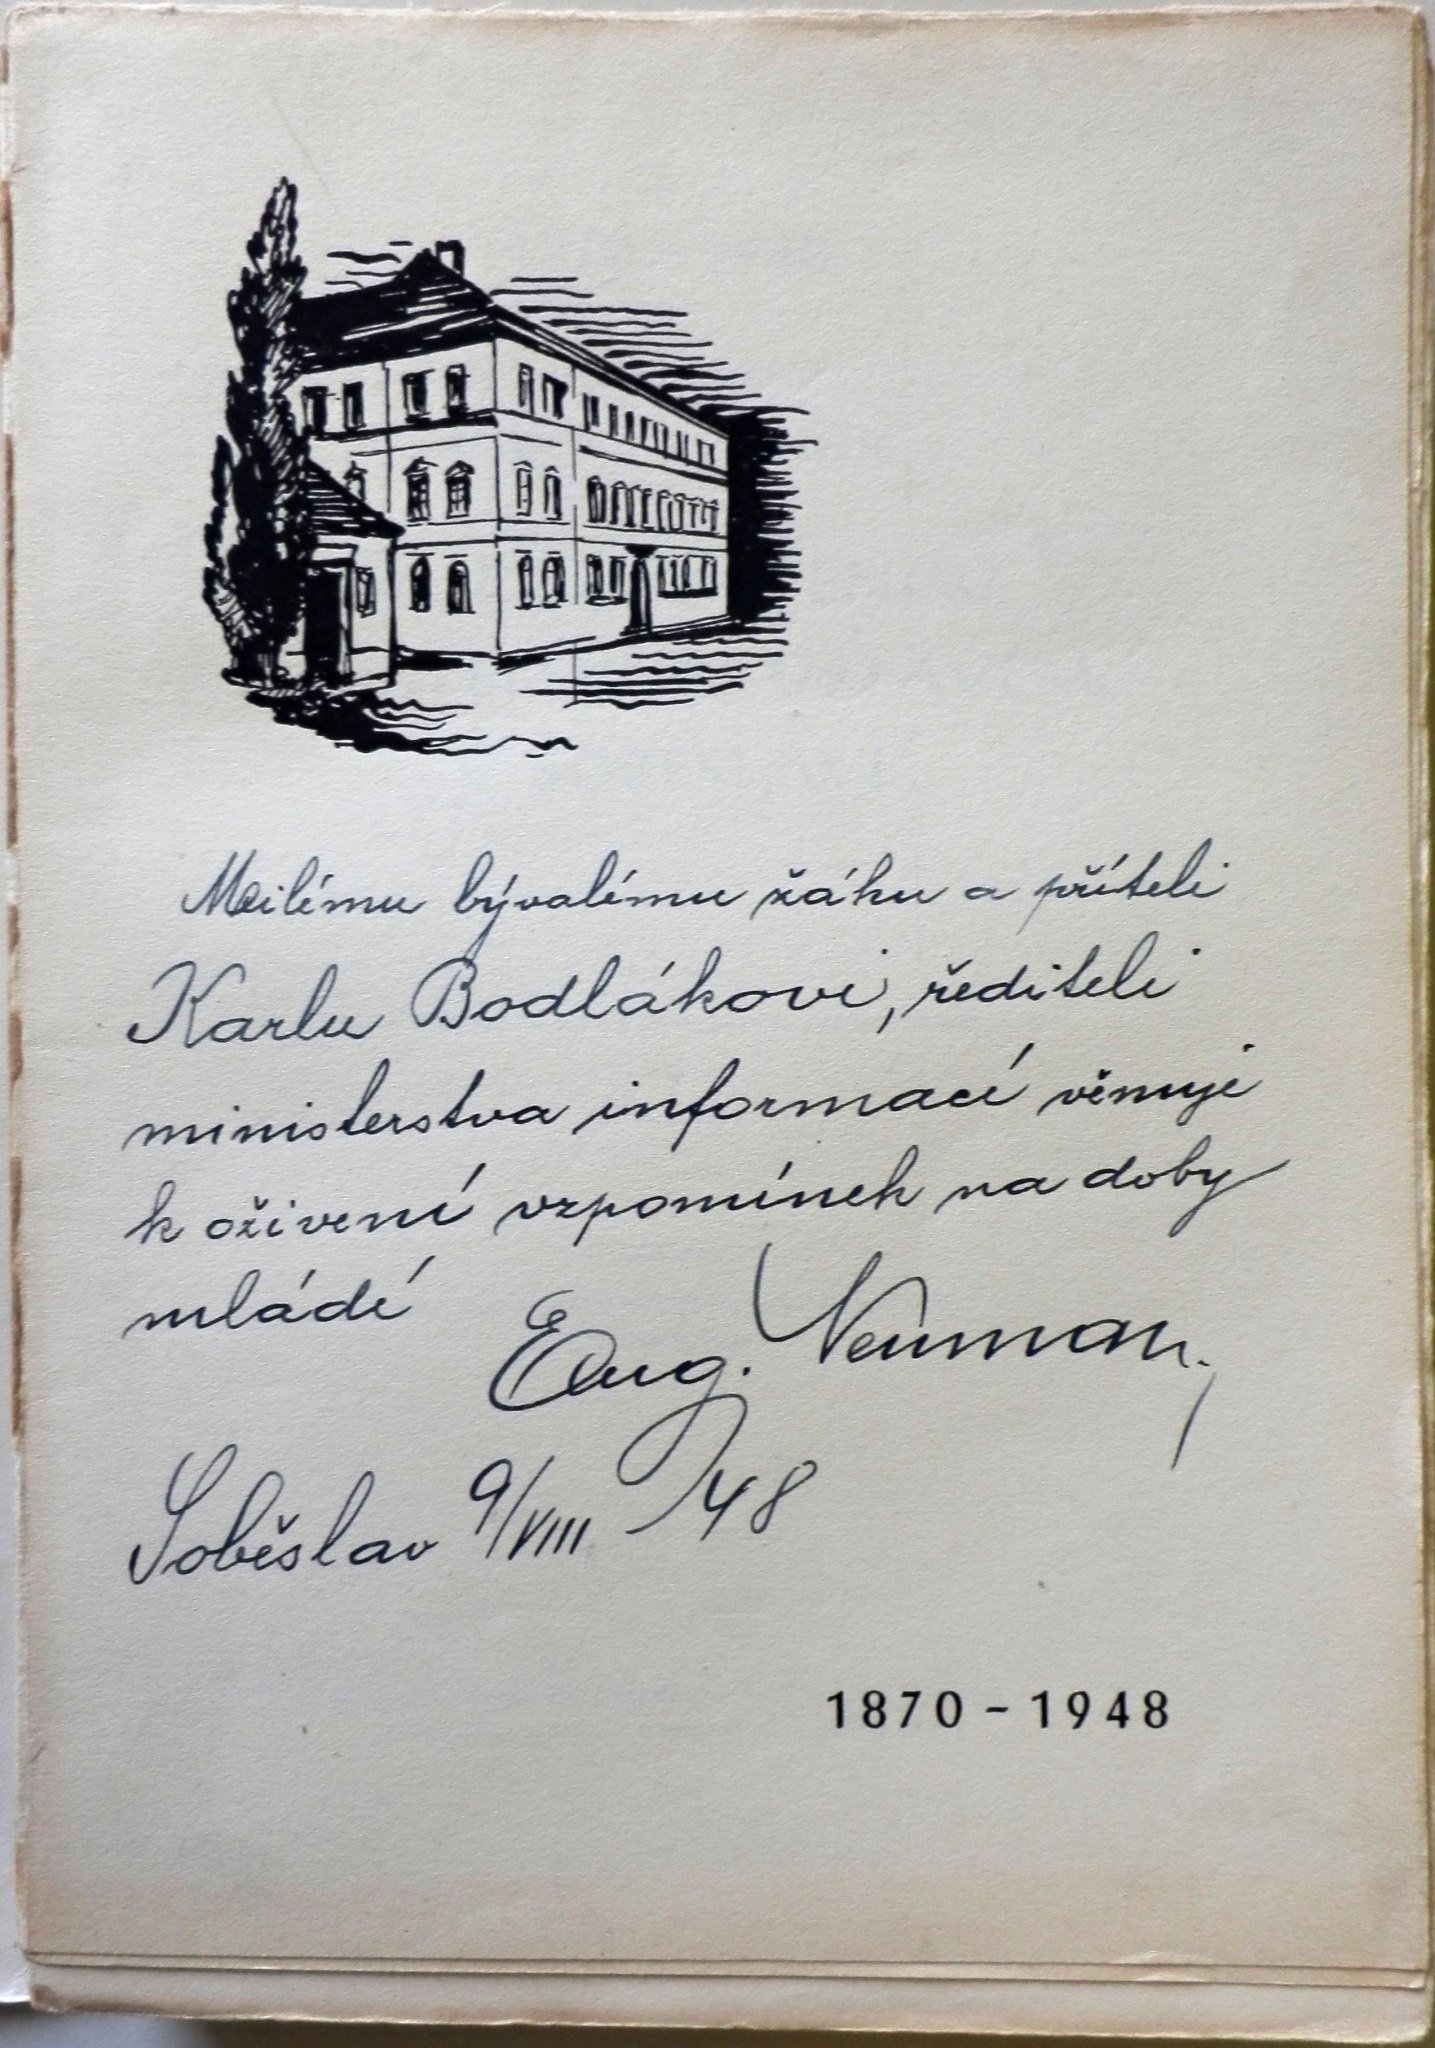 Milému bývalému žáku a příteli
Karlu Bodlákovi, řediteli
ministerstva informací věnuje
k oživení vzpomínek na doby
mládí
Eug. Neuman.
Soběslav 9/VIII 48
1870 - 1948